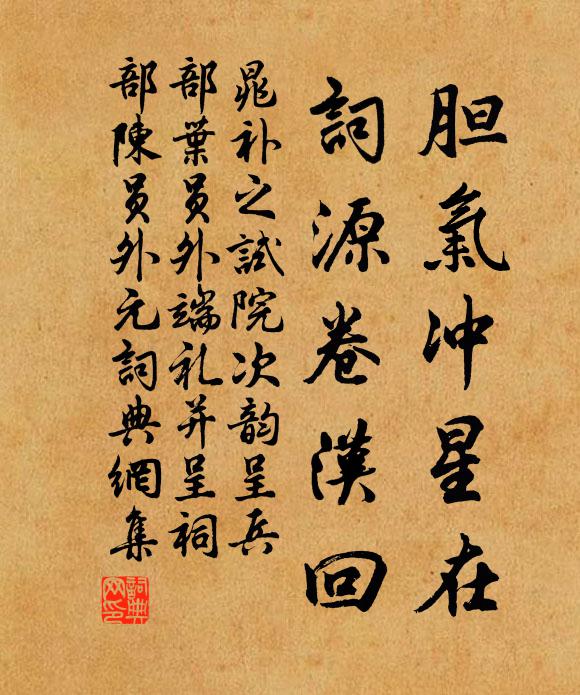 胆氣冲星在
詞源卷漢回
晁补之試院次韵呈兵
部葉員外端礼并呈祠
部陳員外元詞典網集
詞典网印